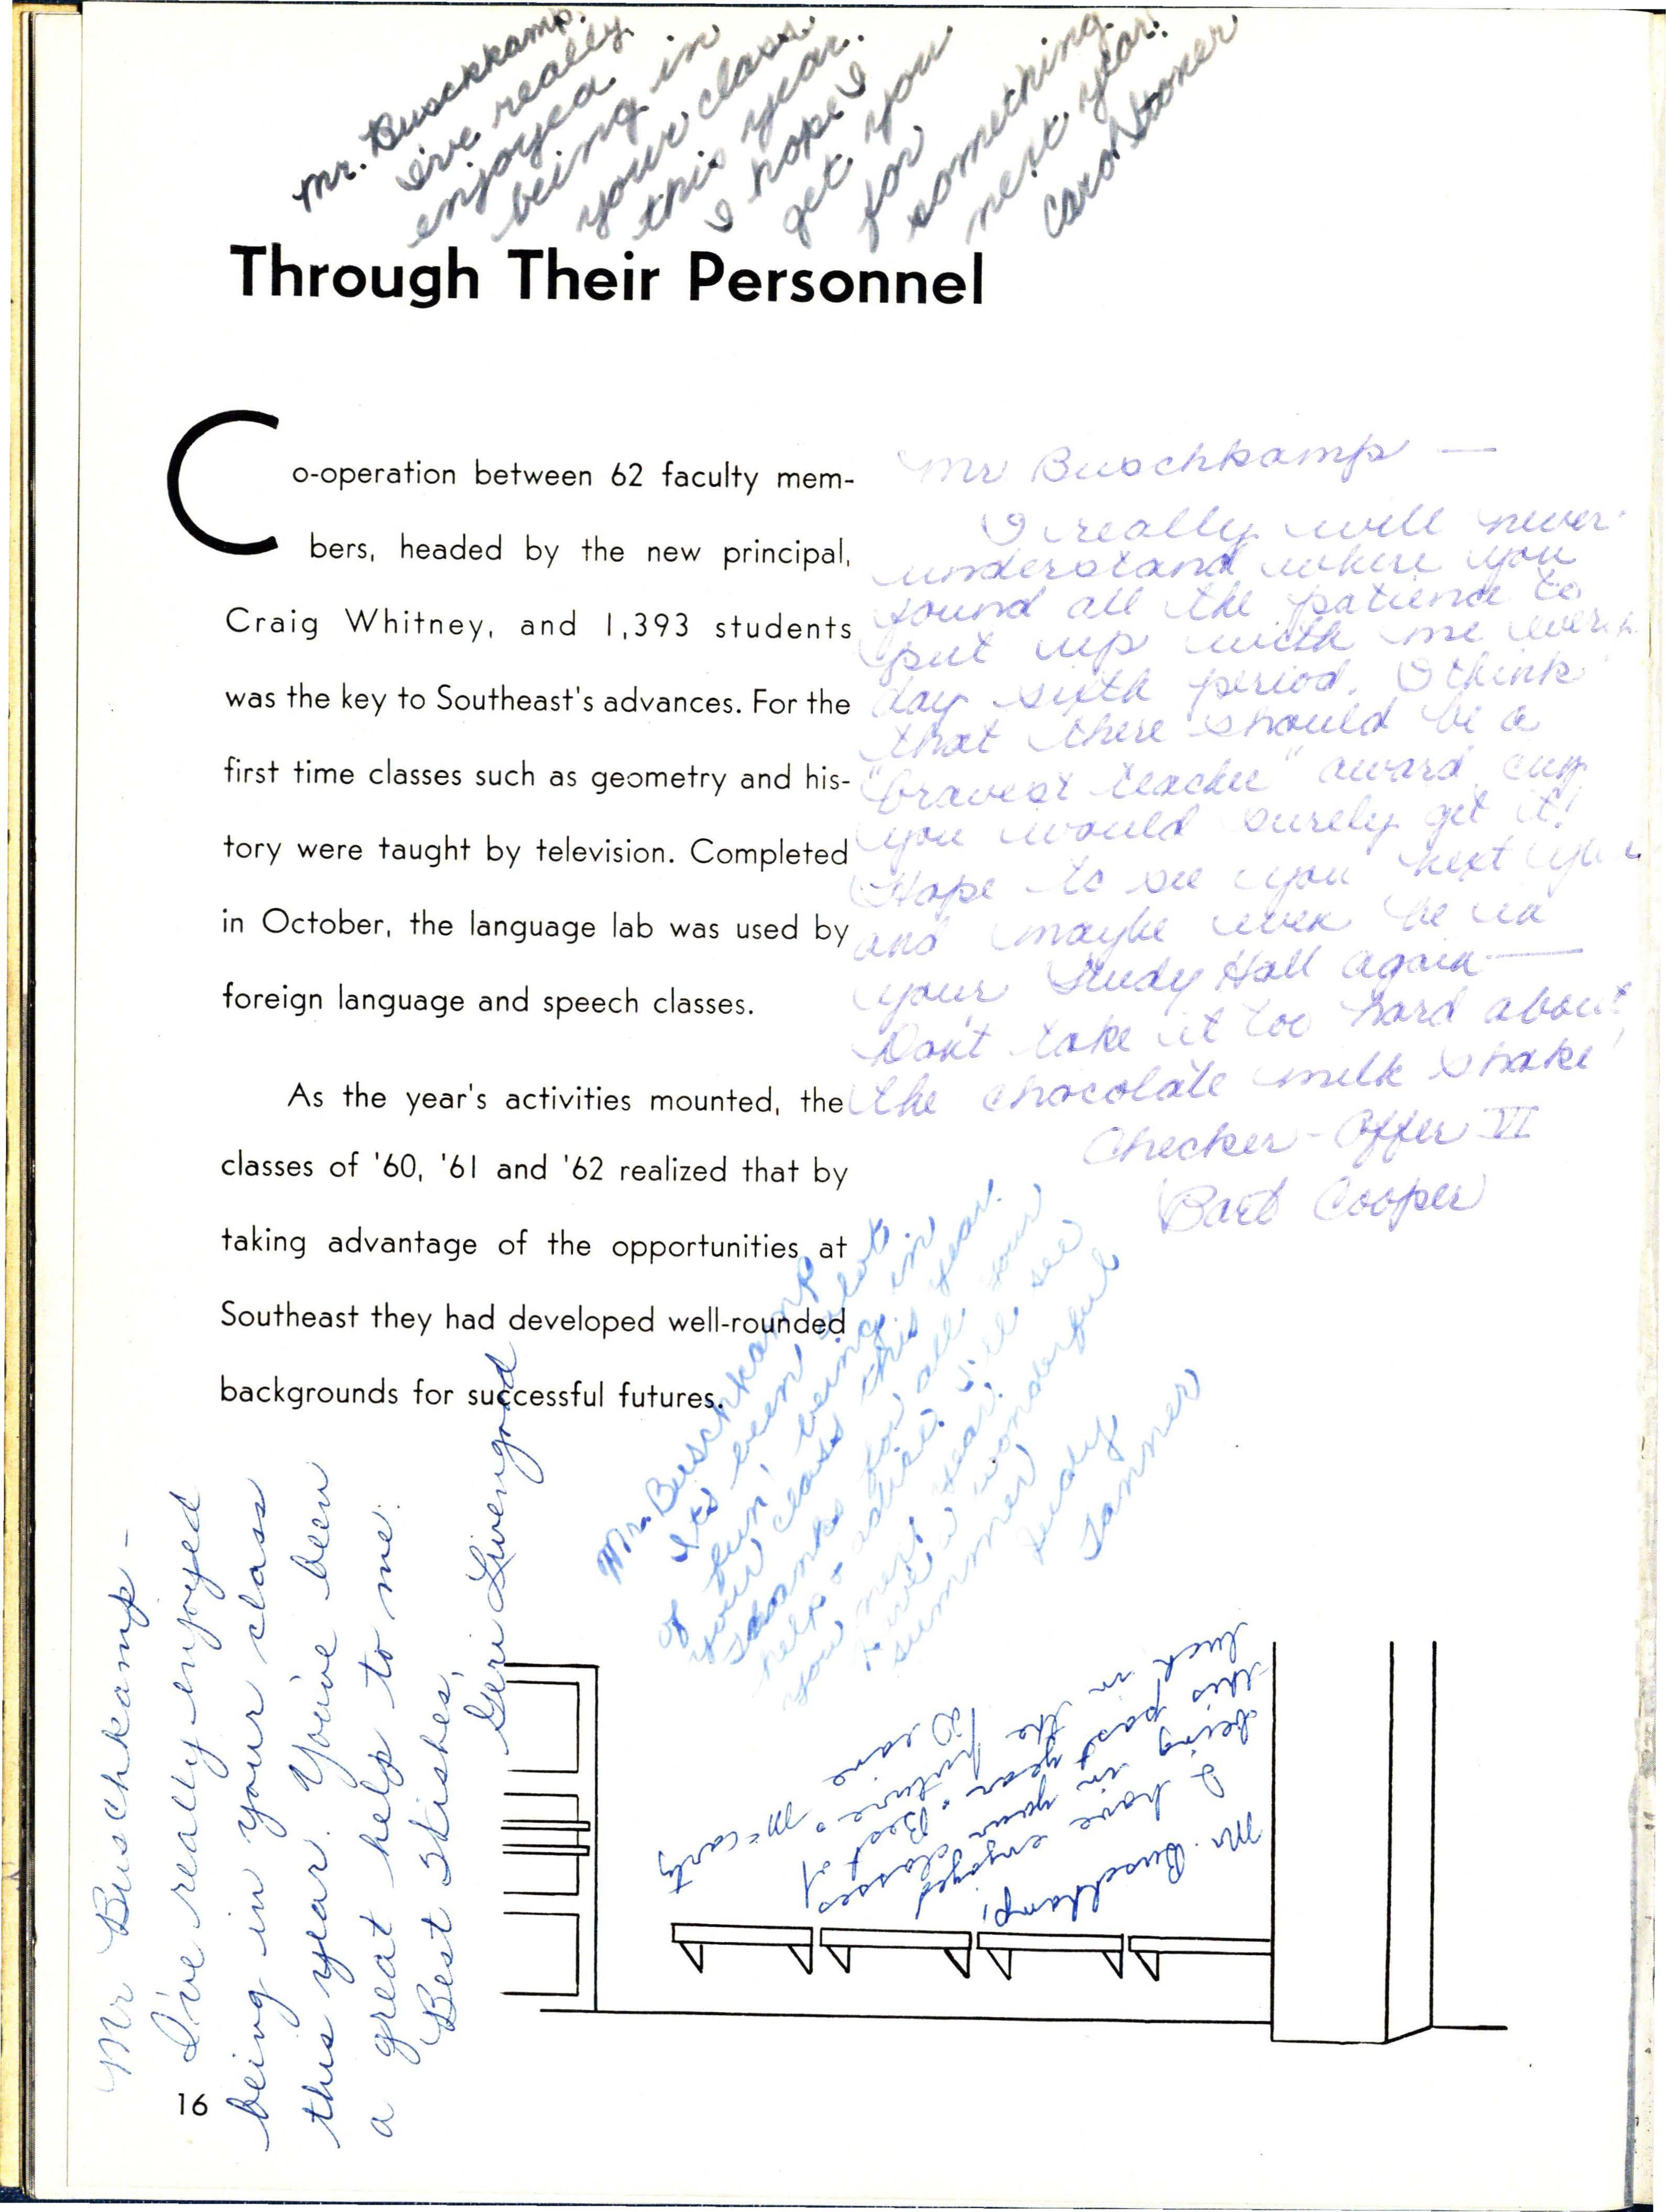 Mr. Buschkamp,
I've really
enjoyed
being in
your class
this year.
I hope I
get you
for
something
next year!
Carol Stoner
Through Their Personnel
Co-operation between 62 faculty mem-
bers, headed by the new principal,
Craig Whitney, and 1,393 students
was the key to Southeast's advances. For the
first time classes such as geometry and his-
tory were taught by television. Completed
in October, the language lab was used by
foreign language and speech classes.
As the year's activities mounted, the
classes of '60, '61 and '62 realized that by
taking advantage of the opportunities at
Southeast they had developed well-rounded
backgrounds for successful futures.
Mr Buschkamp —
I really will never
understand where you
found all the patience to
put up with me every
day sixth period. I think
that there should be a
"bravest teacher" award, cuz
you would surely get it!
Hope to see you next year
and maybe even be in
your Study Hall again —
Don't take it too hard about
the chocolate milk shake!
Checker-Offer VI
Barb Cooper
Mr. Buschkamp
It's been alot
of fun being in
your class this year.
Thanks for all your
help & advice. I'll see
you next year.
Have a wonderful
summer
Judy
Tanner
Mr Buschkamp -
I've really enjoyed
being in your class
this year. You've been
a great help to me.
Best Wishes,
Geri Livengood
Mr. Buschkamp,
I have enjoyed
being in your classes
this past year. Best of
luck in the future.
McCarty
16